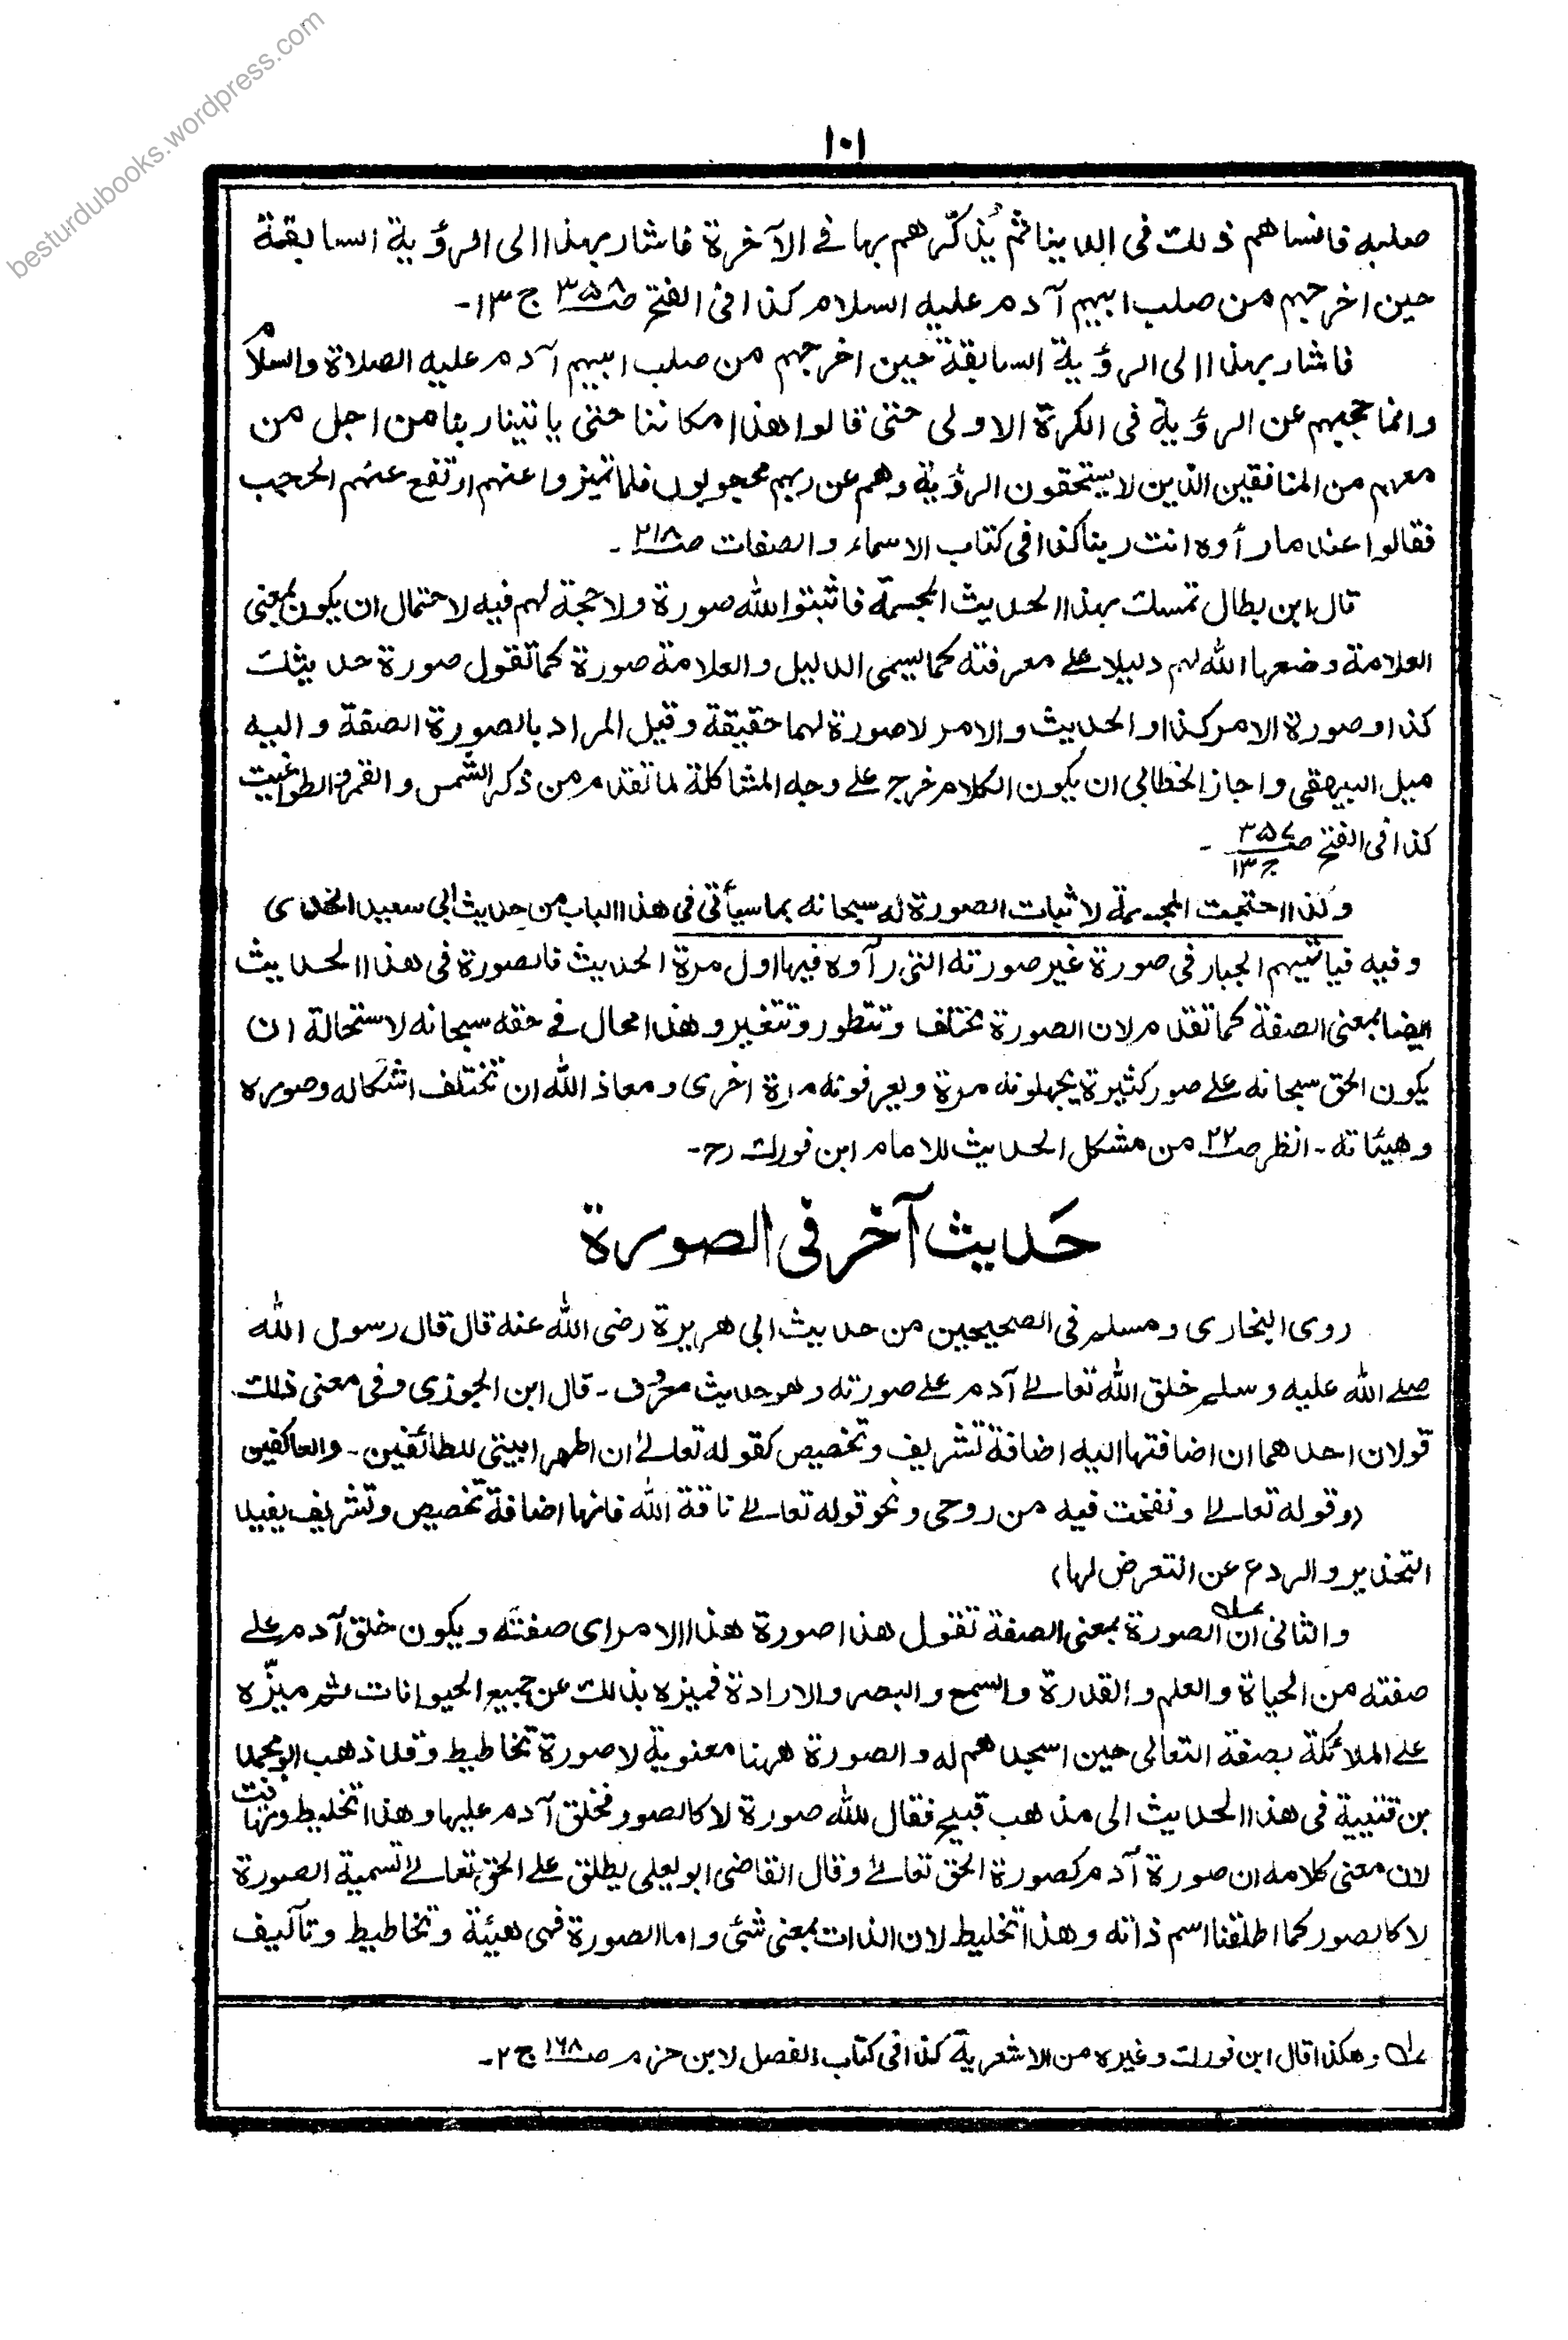 besturdubooks.wordpress.com
١٠١
صلبه فانساهم ذلك فى الدينا ثم يُذكّرهم بها فے الآخرة فاشار بهذا الى الرؤية السابقة
حين اخرجهم من صلب ابيهم آدم عليه السلام كذا فى الفتح صـ٣٥٨ ج ١٣-
فاشار بهذا الى الرؤية السابقة حين اخرجهم من صلب ابيهم آدم عليه الصلاة والسلام
وانما حجبهم عن الرؤية فى الكرة الاولى حتى قالوا هذا مكاننا حتى ياتينا ربنا من اجل من
معهم من المنافقين الذين لا يستحقون الرؤية وهم عن ربهم محجوبون فلما تميزوا عنهم ارتفع عنهم الحجب
فقالوا عند ما رأوه انت ربنا كذا فى كتاب الاسماء والصفات صـ٢١٨ -
قال ابن بطال تمسك بهذا الحديث المجسمة فاثبتوا لله صورة ولا حجة لهم فيه لاحتمال ان يكون بمعنى
العلامة وضعها الله لهم دليلا علے معرفته كما يسمى الدليل والعلامة صورة كما تقول صورة حديثك
كذا وصورة الامر كذا والحديث والامر لا صورة لهما حقيقة وقيل المراد بالصورة الصفة واليه
ميل البيهقى واجاز الخطابى ان يكون الكلام خرج علے وجه المشاكلة لما تقدم من ذكر الشمس والقمر والطواغيت
كذا فى الفتح صـ٣٥٧ ج١٣ -
وكذا احتجت المجسمة لاثبات الصورة له سبحانه بما سيأتى فى هذا الباب من حديث ابى سعيد الخدرى
وفيه فيأتيهم الجبار فى صورة غير صورته التى رآوه فيها اول مرة الحديث فالصورة فى هذا الحديث
ايضا بمعنى الصفة كما تقدم لان الصورة تختلف وتتطور وتتغير وهذا محال فے حقه سبحانه لاستحالة ان
يكون الحق سبحانه علے صور كثيرة يجهلونه مرة ويعرفونه مرة اخرى ومعاذ الله ان تختلف اشكاله وصوره
وهيئاته - انظر صـ٢٢ من مشكل الحديث للامام ابن فورك رح-
حَديث آخر فى الصورة
روى البخارى ومسلم فى الصحيحين من حديث ابى هريرة رضى الله عنه قال قال رسول الله
صلے الله عليه وسلم خلق الله تعالے آدم علے صورته وهو حديث معروف - قال ابن الجوزى وفى معنى ذلك
قولان احدهما ان اضافتها اليه اضافة تشريف وتخصيص كقوله تعالےٰ ان اطهرا بيتى للطائفين - والعاكفين
(وقوله تعالے ونفخت فيه من روحى ونحو قوله تعالے ناقة الله فانها اضافة تخصيص وتشريف يفيد
التحذير والردع عن التعرض لها)
والثانى ان الصورة بمعنى الصفة تقول هذا صورة هذا الامر اى صفته ويكون خلق آدم علے
صفته من الحياة والعلم والقدرة والسمع والبصر والارادة فميزه بذلك عن جميع الحيوانات ثم ميزّه
علے الملائكة بصفة التعالى حين اسجدهم له والصورة ههنا معنوية لا صورة تخاطيط وقد ذهب ابو محمد
بن قتيبة فى هذا الحديث الى مذهب قبيح فقال لله صورة لا كالصور فخلق آدم عليها وهذا تخليط وتهافت
لان معنى كلامه ان صورة آدم كصورة الحق تعالےٰ وقال القاضى ابو يعلى يطلق علے الحق تعالےٰ تسمية الصورة
لا كالصور كما اطلقنا اسم ذاته وهذا تخليط لان الذات بمعنى شئى واما الصورة فهى هيئة وتخاطيط وتآليف
له وهكذا قال ابن فورك وغيره من الاشعرية كذا فى كتاب الفصل لابن حزم صـ١٦٨ ج ٢-